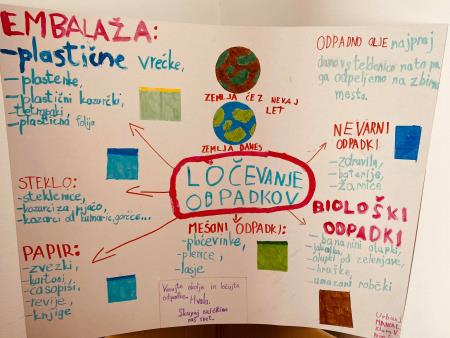 EMBALAŽA:
-plastične vrečke,
-plastenke,
-plastični kozarčki,
-tetrapaki,
-plastična folija
STEKLO:
-steklenice,
-kozarci za pijačo,
-kozarci od kumaric, gorčice...
PAPIR:
-zvezki,
-kartoni,
-časopisi,
-revije,
-knjige
ZEMLJA ČEZ NEKAJ
LET
ZEMLJA DANES
LOČEVANJE
ODPADKOV
MEŠANI ODPADKI:
-pločevinke,
-plenice,
-lasje
Varujte okolje in ločujte
odpadke. Hvala.
Skupaj rešimo
naš svet.
ODPADNO OLJE najprej
damo v steklenico nato pa
ga odpeljemo na zbirno
mesto.
NEVARNI
ODPADKI:
-zdravila,
-baterije,
-žarnice
BIOLOŠKI
ODPADKI
-bananini olupki,
-jabolka,
-olupki od zelenjave,
-hruške,
-umazani robčki